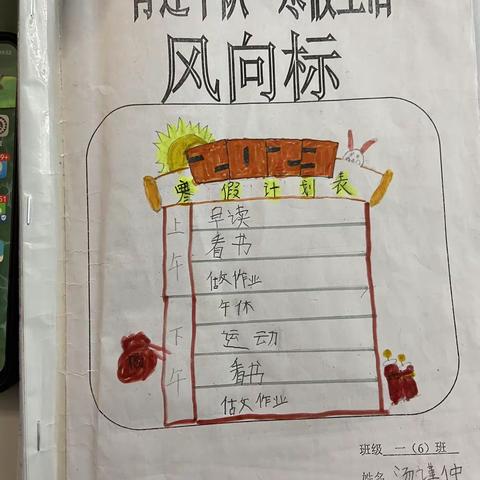 风向标
2023
寒假计划表
上午
早读
看书
做作业
下午
午休
运动
看书
做作业
班级 一（6）班
姓名